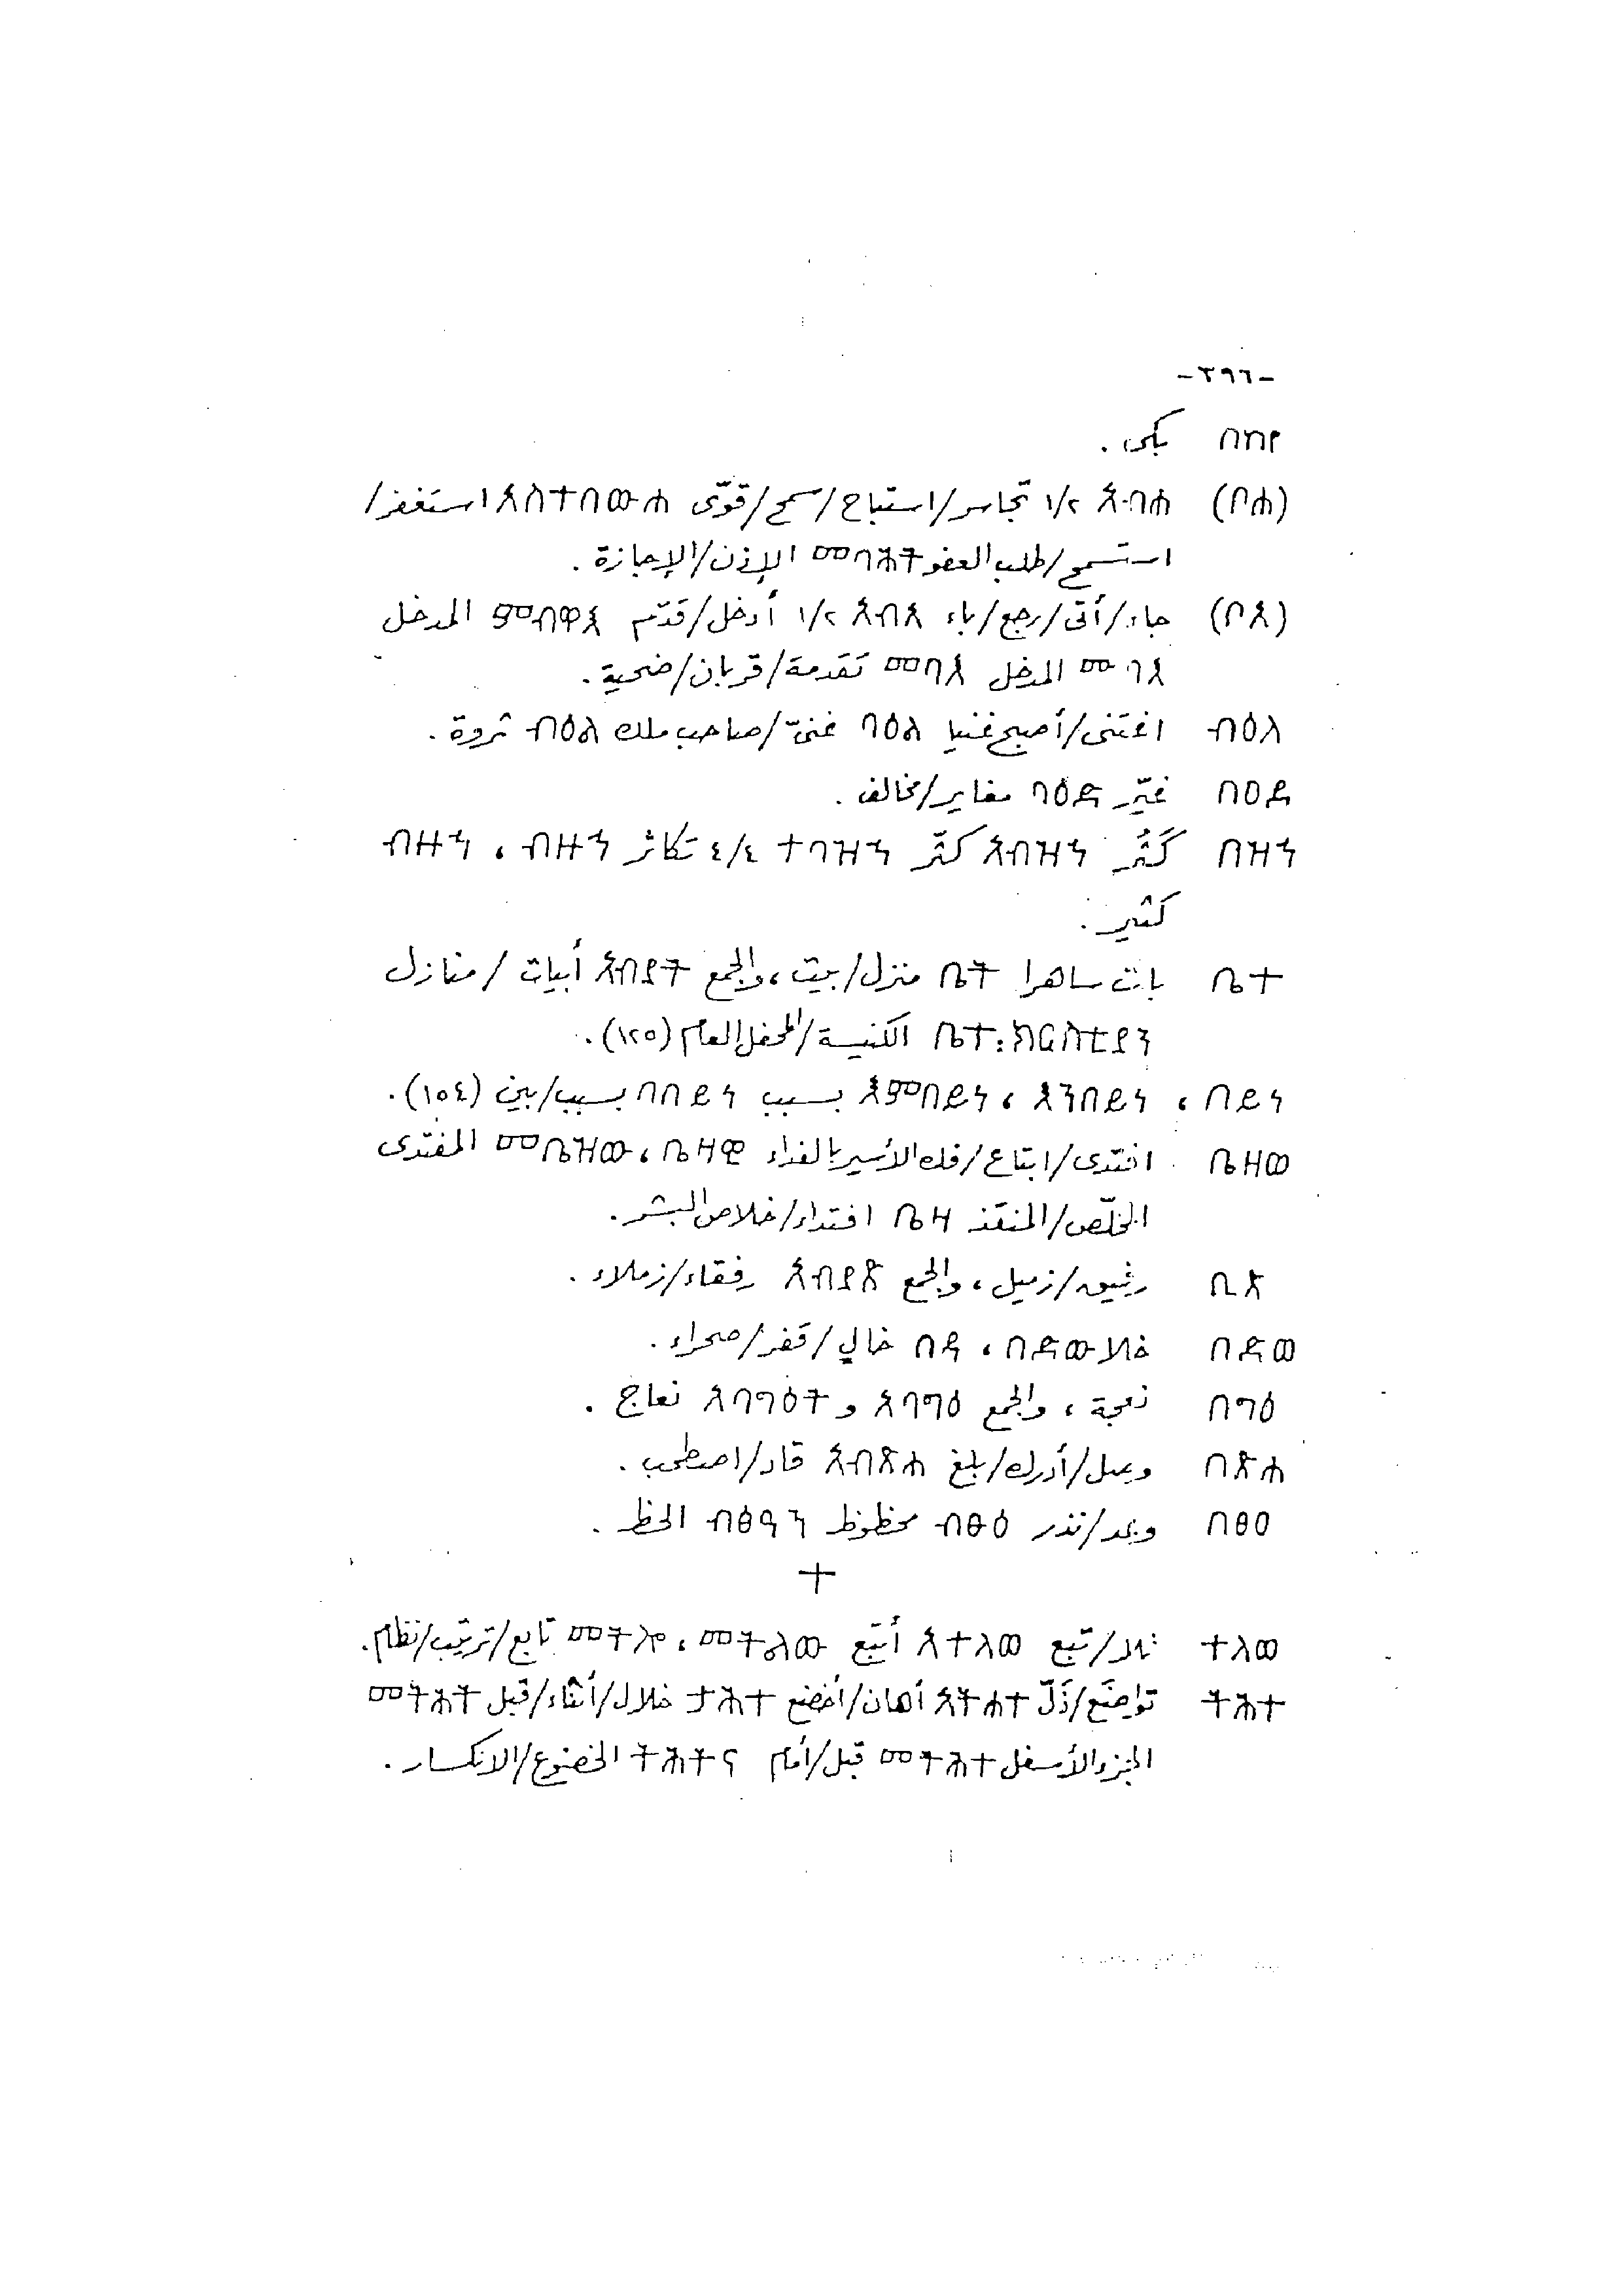 -٣٩٦-
በከየ بكى .
(ቦሐ) አብሐ ١/٢ تجاسر/استباح/سمح/قوّى አስተብውሐ استغفر/
استسمح/طلب العفو መባሕት الإذن/الإجازة .
(ቦአ) جاء/أتى/رجع/باء አብአ ١/٢ أدخل/قدّم ምብዋእ المدخل
ሙባእ المدخل መባእ تقدمة/قربان/ضحية.
ብዕለ اغتنى/أصبح غنيا ባዕል غنيّ/صاحب ملك ብዕል ثروة .
በዐደ غيّر ባዕድ مغاير/مخالف .
በዝኀ كَثُر አብዝኀ كثّر ተባዝኀ ٤/٤ تكاثر ብዝኅ، ብዙኅ
كثير.
ቤተ بات ساهرا ቤት منزل/بيت، والجمع አብያት أبيات /منازل
ቤተ፡ክርስቲያን الكنيسة/المحفل العام (١٢٥).
በይነ، እንበይነ، እምበይነ بسبب በበይነ بسبب/بين (١٥٤).
ቤዘወ افتدى/ابتاع/فك الأسير بالفداء ቤዛዊ، መቤዝው المفتدى
المخلّص/المنقذ ቤዛ افتداء/خلاص البشر.
ቢጽ رفيق/زميل، والجمع አብያጽ رفقاء/زملاء .
በድወ خلا ብድው، በድው خالي/قفر/صحراء.
በግዕ نعجة، والجمع አባግዕ و አባግዕት نعاج .
በጽሐ وصل/أدرك/بلغ አብጽሐ قاد/اصطحب .
በፅዐ وعد/نذر ብፁዕ محظوظ ብፅዓን الحظ .
ተ
ተለወ تلا/تبع አትለወ أتبع መትልው، መትሎ تابع/ترتيب/نظام.
ትሕተ تواضَع/ذَلّ አትሐተ أهان/أخضع ታሕተ خلال/أثناء/قبل መትሕት
الجزء الأسفل መትሕተ قبل/أمام ትሕትና الخضوع/الانكسار .